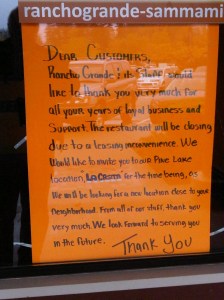 ranchogrande-sammami
Dear Customers,
Rancho Grande & its Staff would
like to thank you very much for
all your years of loyal business and
support. The restaurant will be closing
due to a leasing inconvenience. We
would like to invite you to our Pine Lake
location, "La Costa" for the time being, as
we will be looking for a new location close to your
neighborhood. From all of our staff, thank you
very much. We look forward to serving you
in the future. Thank You